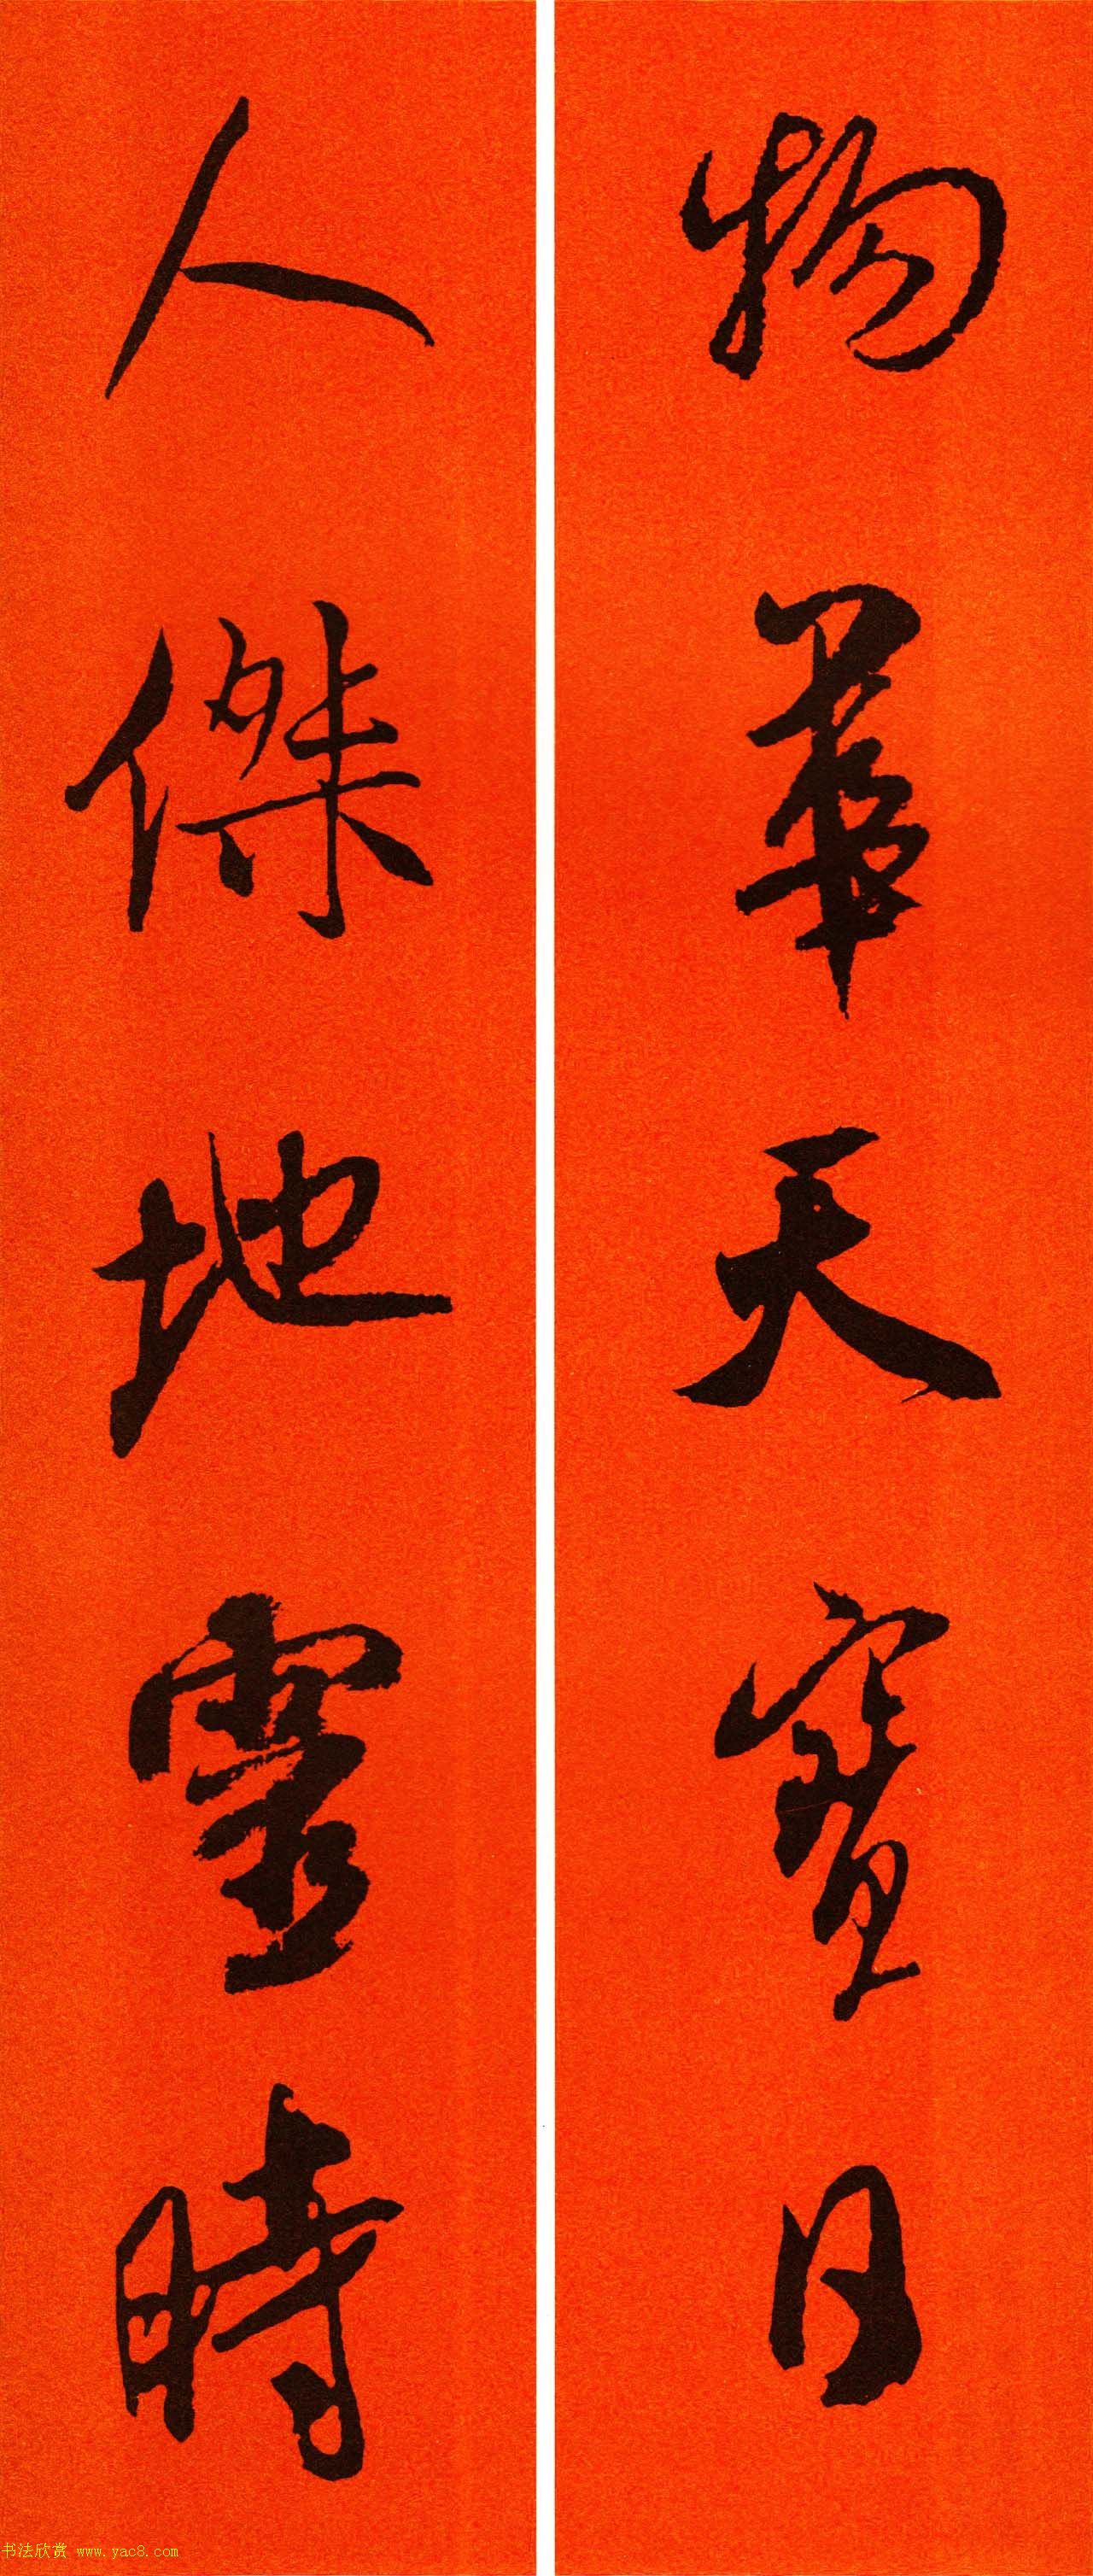 物華天寶日
人傑地靈時
书法欣赏 www.yac8.com